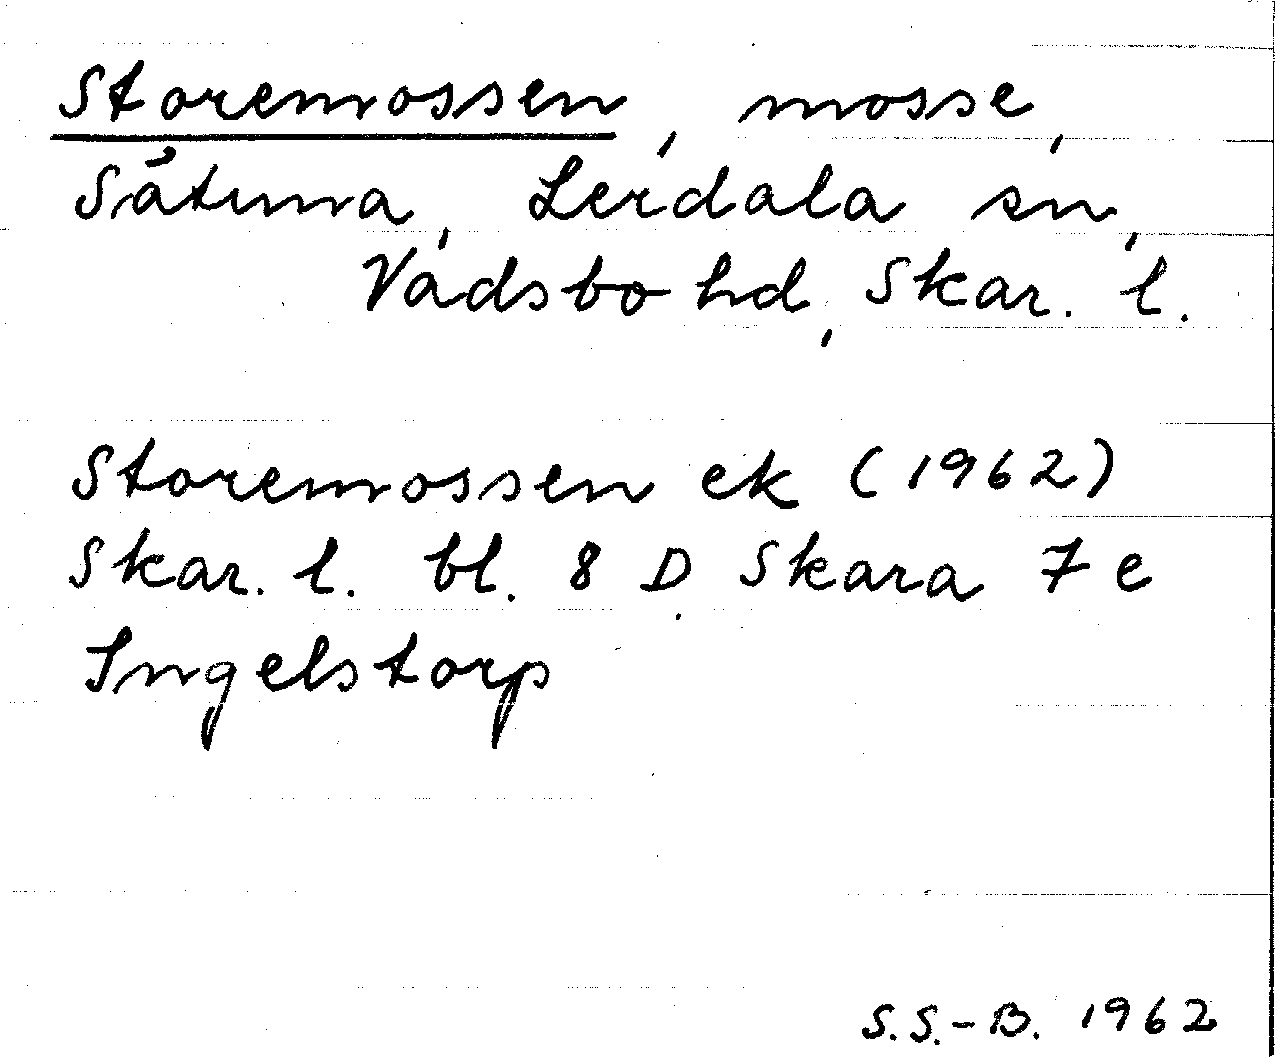 Storemossen, mosse,
Såtuna, Lerdala sn,
Vadsbo hd, Skar. l.
Storemossen ek (1962)
Skar. l. bl. 8 D Skara 7 e
Ingelstorp
S.S.-B. 1962